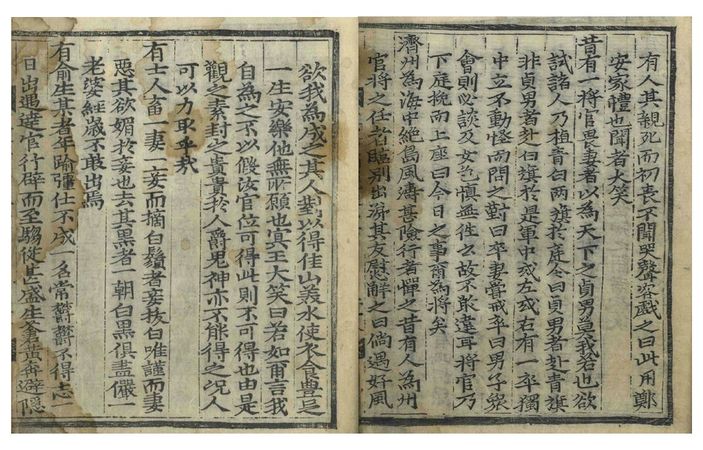 有人其親死而初喪不聞哭聲客戱之曰此用鄭
安家體也聞者大笑
昔有一將官畏妻者以為天下之貞男莫我若也欲
試諸人乃植靑白兩旗於庭令曰貞男者赴靑旗
非貞男者赴白旗於是軍中或左或右有一卒獨
中立不動怪而問之對曰卒妻嘗戒卒曰男子衆
會則必談及女色愼無往也故不敢違耳將官乃
下庭挽而上座曰今日之事爾為將矣
濟州為海中絶島風濤甚險行者憚之昔有人為州
官將之任者臨別出涕其友慰解之曰倘遇好風
欲我為成之其人對以得佳山叢水使衣食豊足
一生安樂他無所願也冥王大笑曰若如爾言我
自為之不以假汝官位可得此則不可得也由是
觀之素封之貴貴於人爵鬼神亦不能得之况人
可以力取乎哉
有士人畜一妻一妾而摘白鬚者妾抜白唯謹而妻
惡其欲媚於妾也去其黑者一朝白黑俱盡儼一
老婆經歲不敢出焉
有兪生其者年踰彊仕不成一名常欝欝不得志
日出遇達官行辟而至騶從甚盛生蒼黃奔避隱